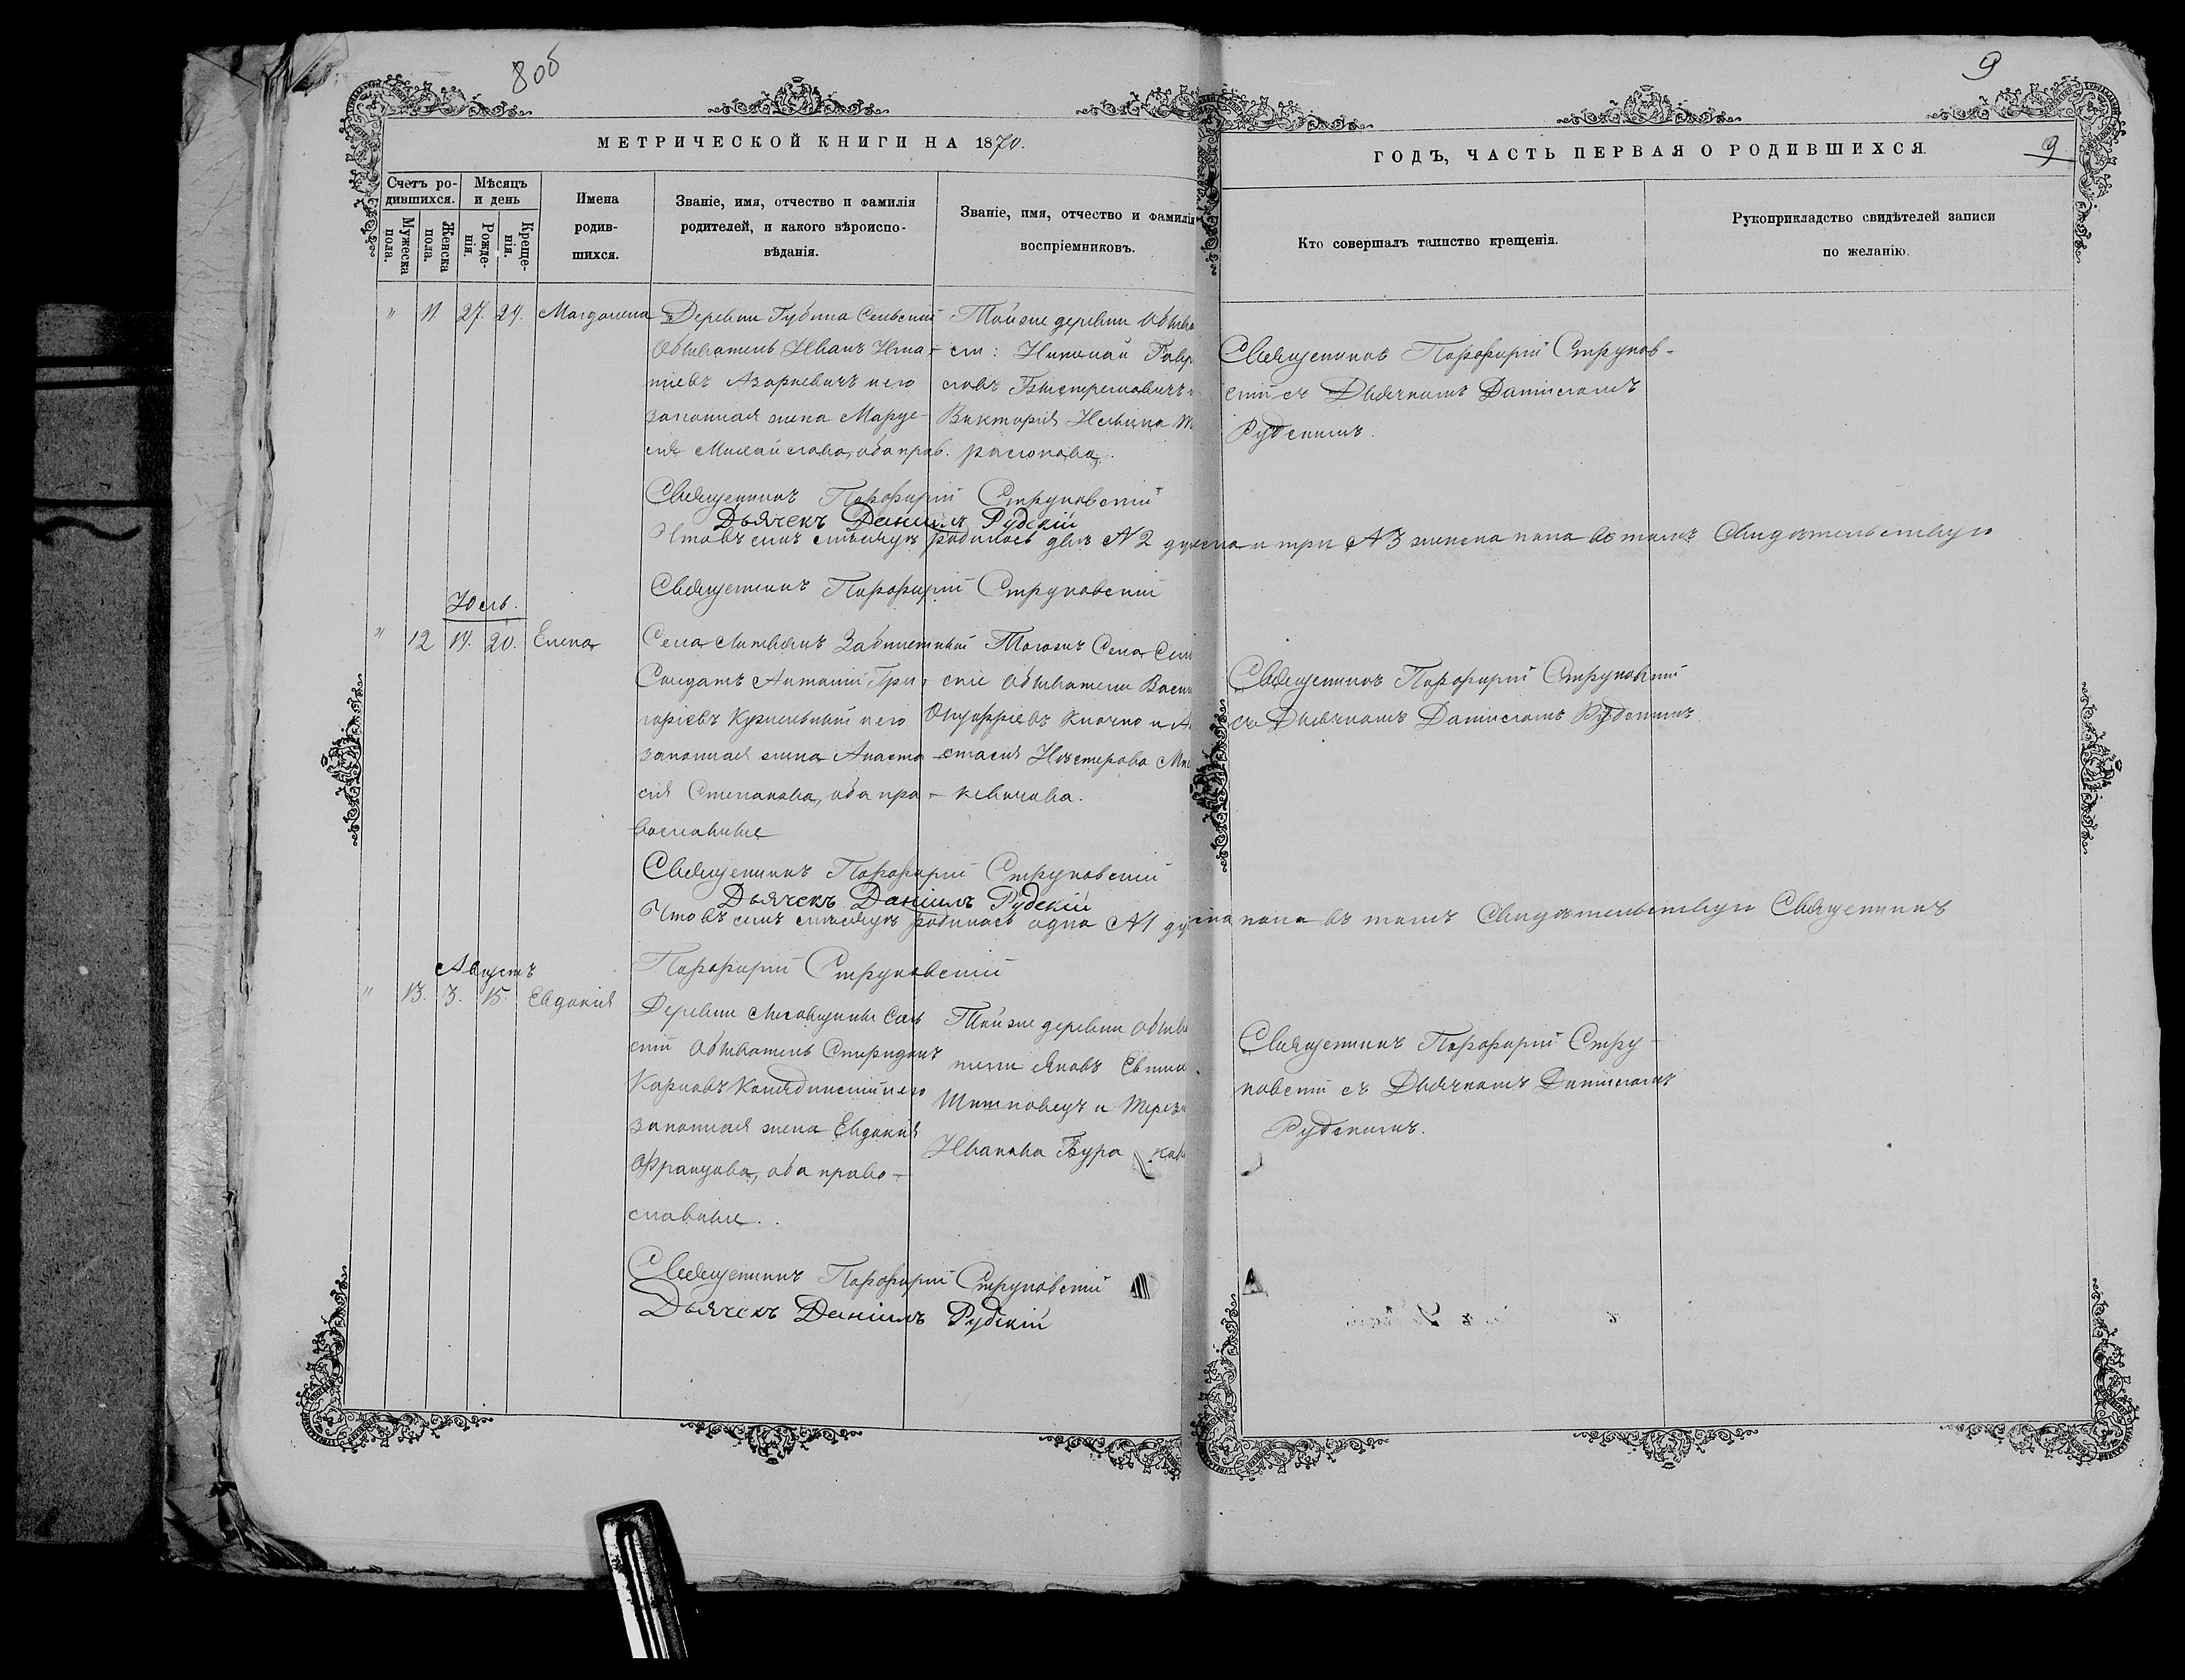 8об
9
МЕТРИЧЕСКОЙ КНИГИ НА 1870.
ГОДЪ, ЧАСТЬ ПЕРВАЯ О РОДИВШИХСЯ.
9
Счетъ ро-
дившихся.
Мужеска
пола.
Женска
пола.
Мѣсяцъ
и день
Рожде-
нія.
Креще-
нія.
Имена
родив-
шихся.
Званіе, имя, отчество и фамилія
родителей, и какого вѣроиспо-
вѣданія.
Званіе, имя, отчество и фамилія
воспріемниковъ.
Кто совершалъ таинство крещенія.
Рукоприкладство свидѣтелей записи
по желанію.
" 11. 27. 29. Магдалена
Деревни Губина Сельскій
Обыватель Иванъ Игна-
тіевъ Азаркевичъ и его
законная жена
Михайлова, оба прав.
Тойже деревни
Николай
Викторія
Священникъ Порфирій Струков-
скій съ Дьячкомъ Даніиломъ
Рудскимъ.
Священникъ Порфирій Струковскій
Дьячекъ Даніилъ Рудскій
Что въ семъ мѣсяцѣ родилось два № 2 мужеска и три № 3 женска пола въ томъ Свидѣтельствую
Священникъ Порфирій Струковскій
Юль.
" 12 19. 20. Елена
Села
Солдатъ Антоній Гри-
горіевъ и его
законная жена Анаста-
сія Степанова, оба пра-
вославные
Тогожъ Села
скіе Обыватели
Онуфріевъ
стасія Нестерова
Священникъ Порфирій Струковскій
съ Дьячкомъ Даніиломъ Рудскимъ
Священникъ Порфирій Струковскій
Дьячекъ Даніилъ Рудскій
Что въ семъ мѣсяцѣ родилась одна № 1 пола въ томъ Свидѣтельствую Священникъ
Порфирій Струковскій
Августъ
" 13. 3. 15. Евдокія
Деревни
скій Обыватель Спиридонъ
Карповъ и его
законная жена Евдокія
Францова, оба право-
славные.
Тойже деревни
Яковъ
и
Иванова
Священникъ Порфирій Стру-
ковскій съ Дьячкомъ Даніиломъ
Рудскимъ.
Священникъ Порфирій Струковскій
Дьячекъ Даніилъ Рудскій